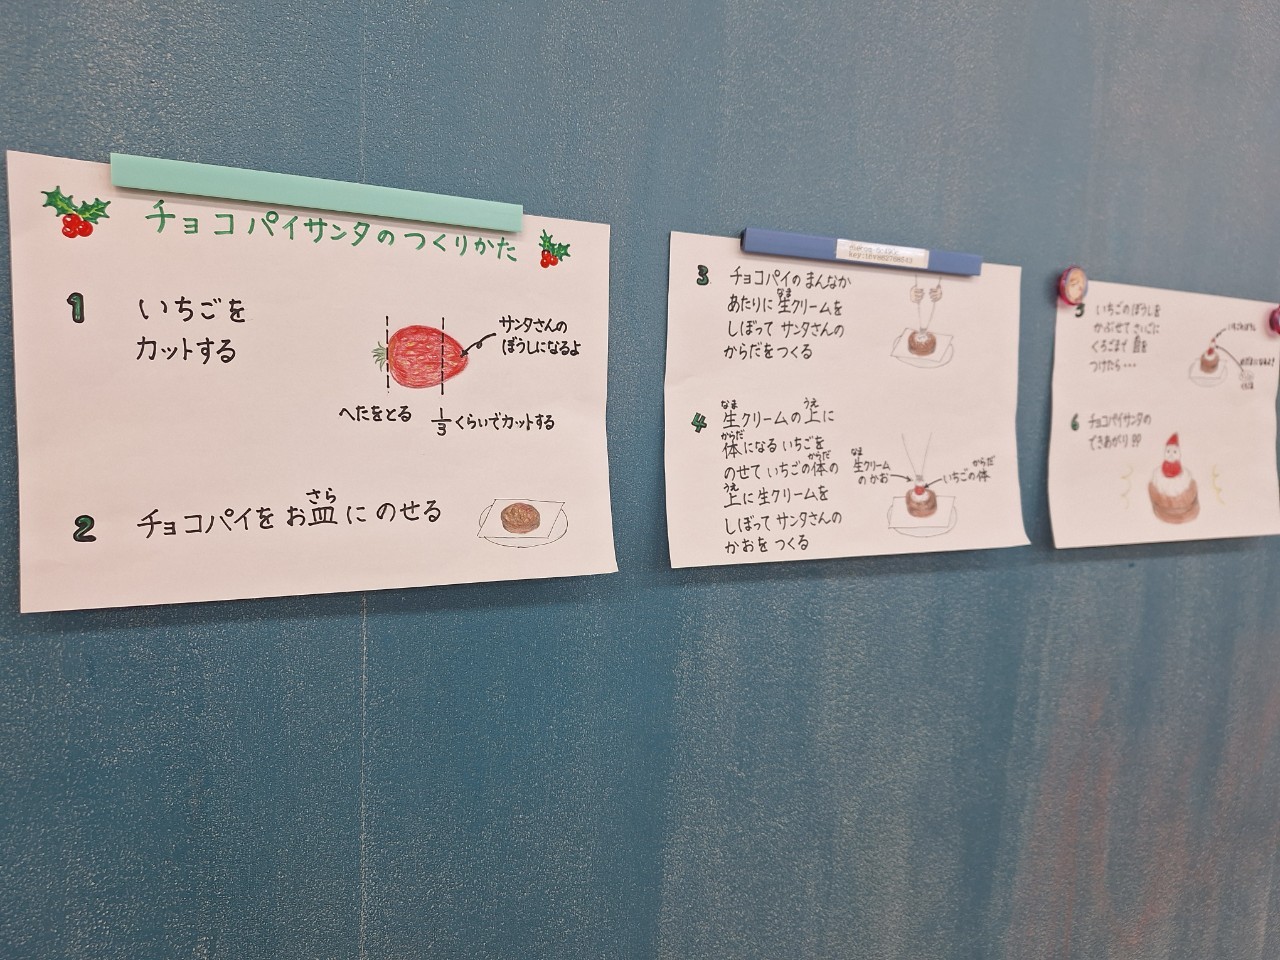 チョコパイサンタのつくりかた
1
いちごを
カットする
サンタさんの
ぼうしになるよ
へたをとる
1/3くらいでカットする
2
さら
チョコパイをお皿にのせる
3
チョコパイのまんなか
なま
あたりに生クリームを
しぼってサンタさんの
からだをつくる
4
なま うえ
生クリームの上に
からだ
体になるいちごを
からだ
のせていちごの体の
うえ
上に生クリームを
しぼってサンタさんの
かおをつくる
なま
生クリーム
のかお
からだ
いちごの体
いちごのぼうしを
かぶせてさいごに
くろごまで目を
つけたら・・・
6
チョコパイサンタの
できあがり